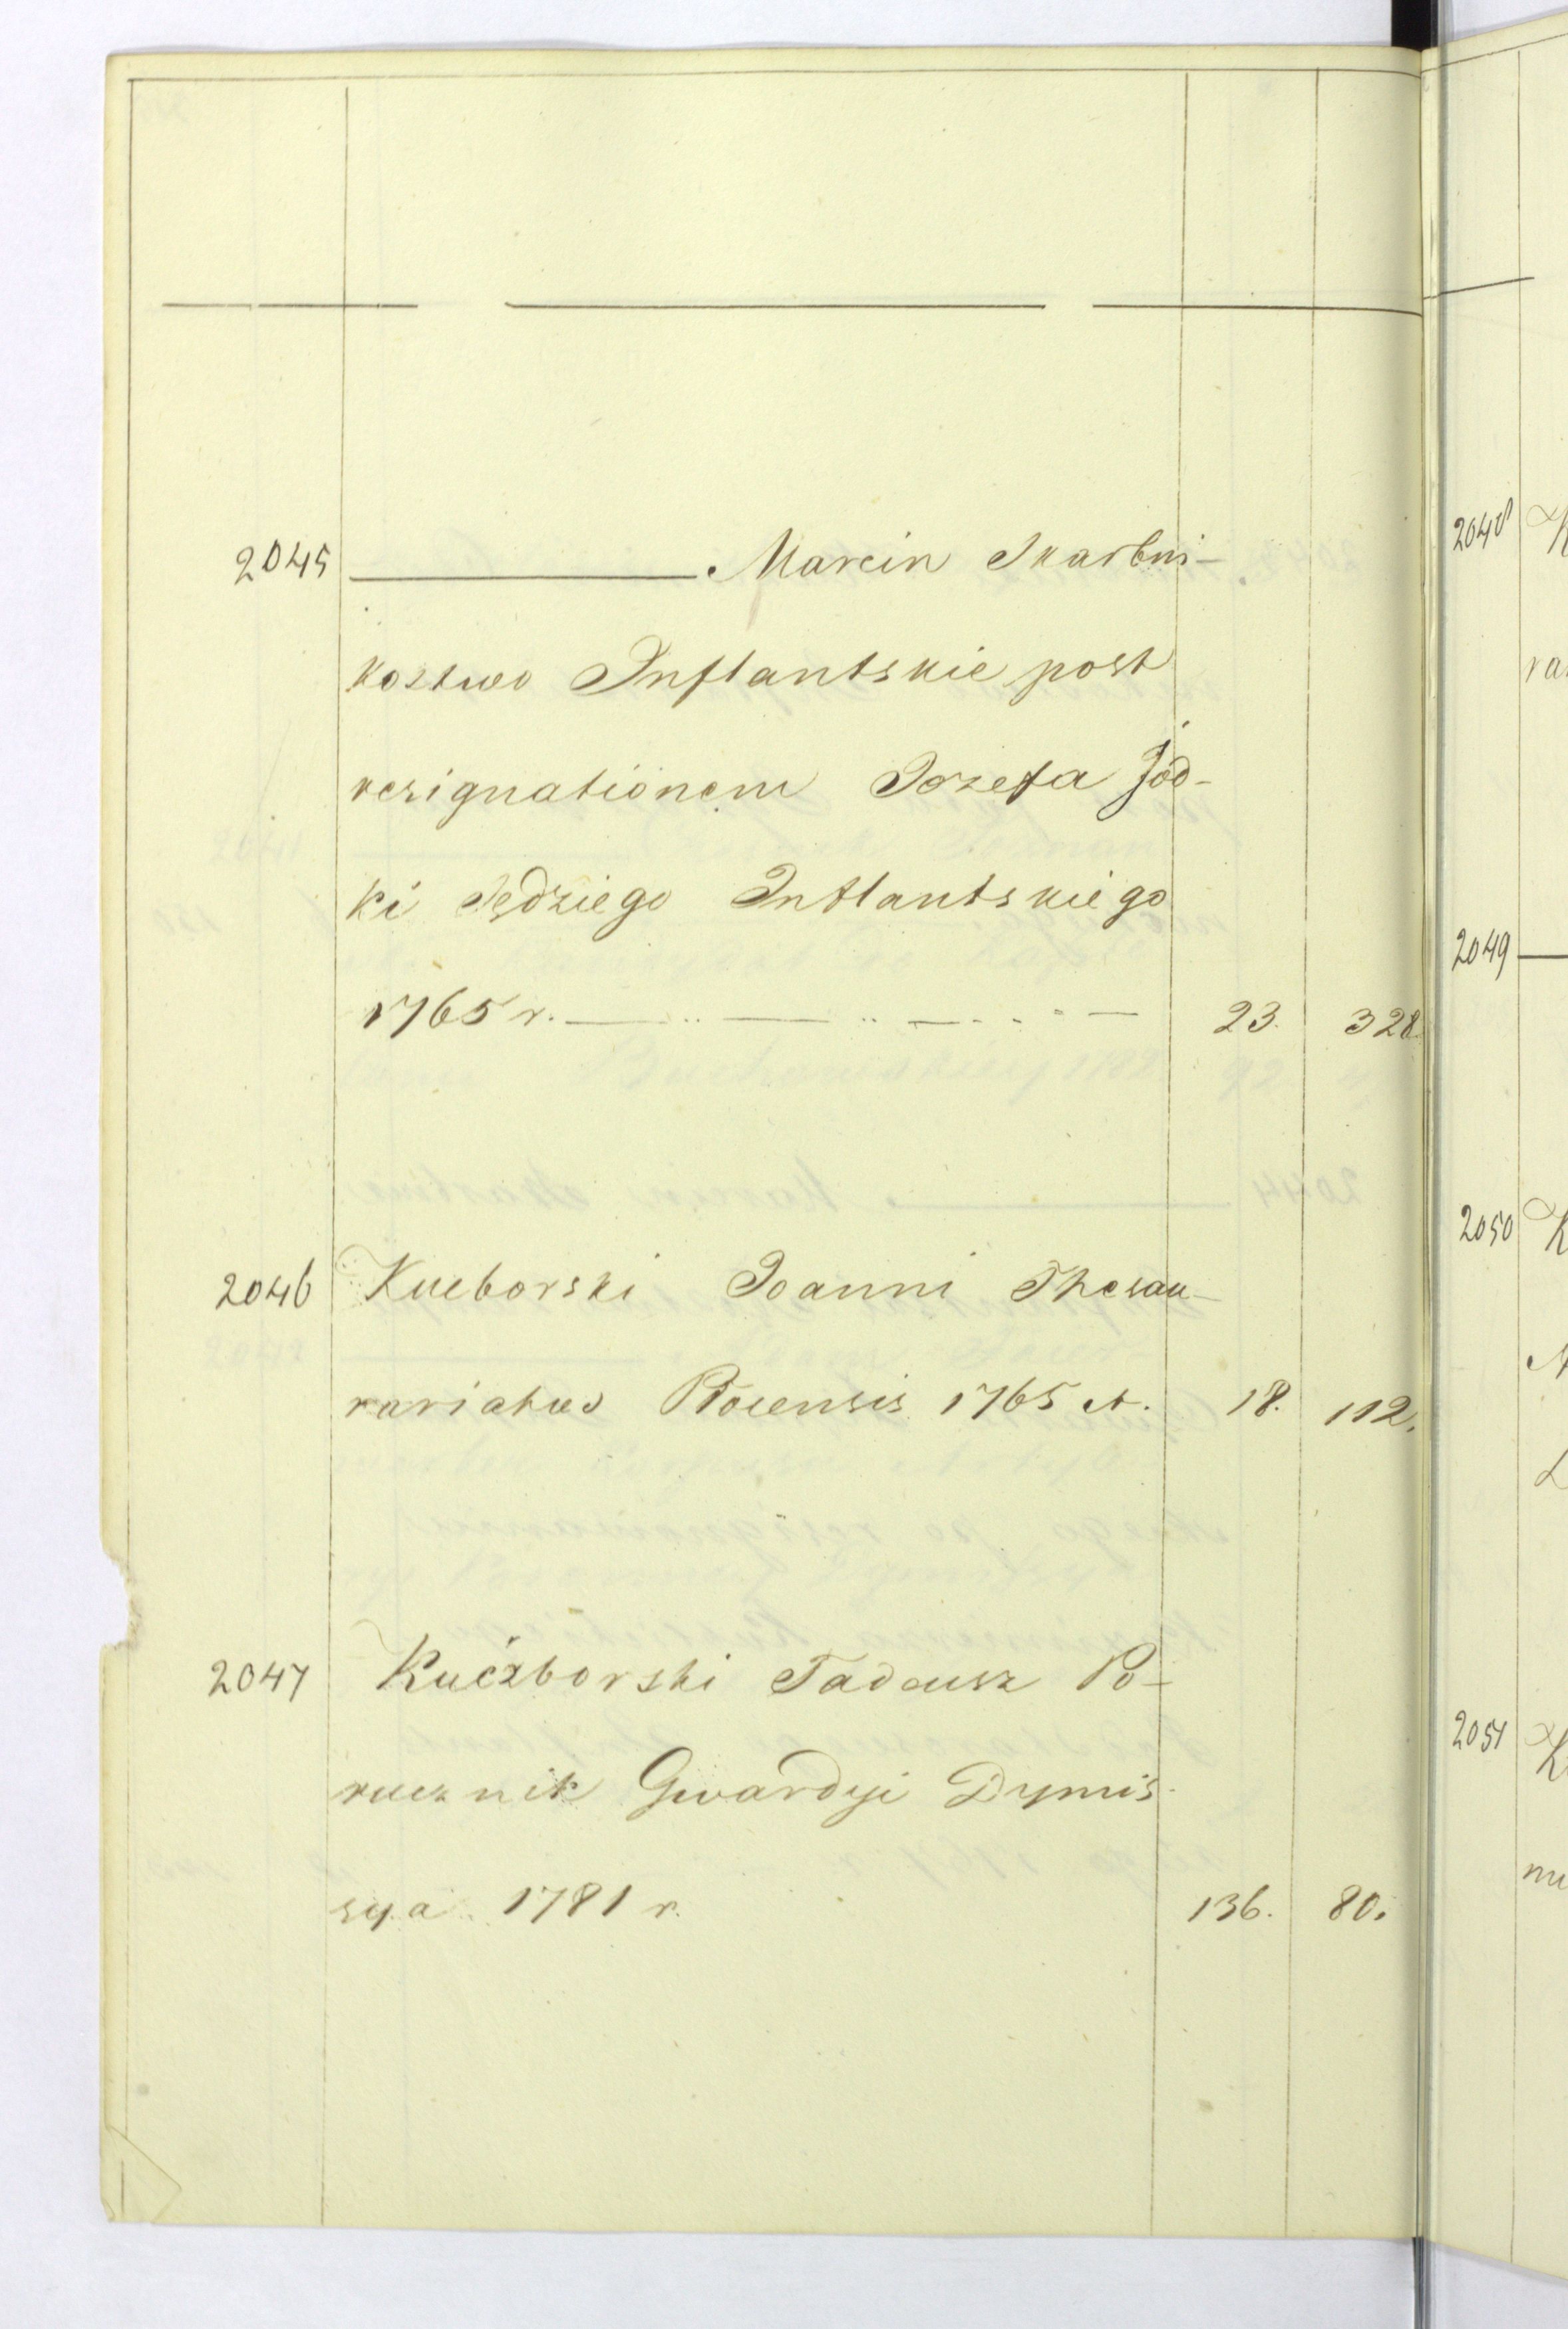 2045 ———. Marcin Skarbni-
kostwo Inflantskie post
resignationem Jozefa Jód-
ki Sędziego Inflantskiego
1765 r. — .. — .. — . - . - — 23. 328.
2046 Kucborski Joanni Thesau-
rariatus Plocensis 1765 A. 18. 112.
2047 Kuczborski Tadeusz Po-
rucznik Gwardyi Dymis-
sya 1781 r. 136. 80.
2048 K
ra
2049 —
2050 K
2051 K